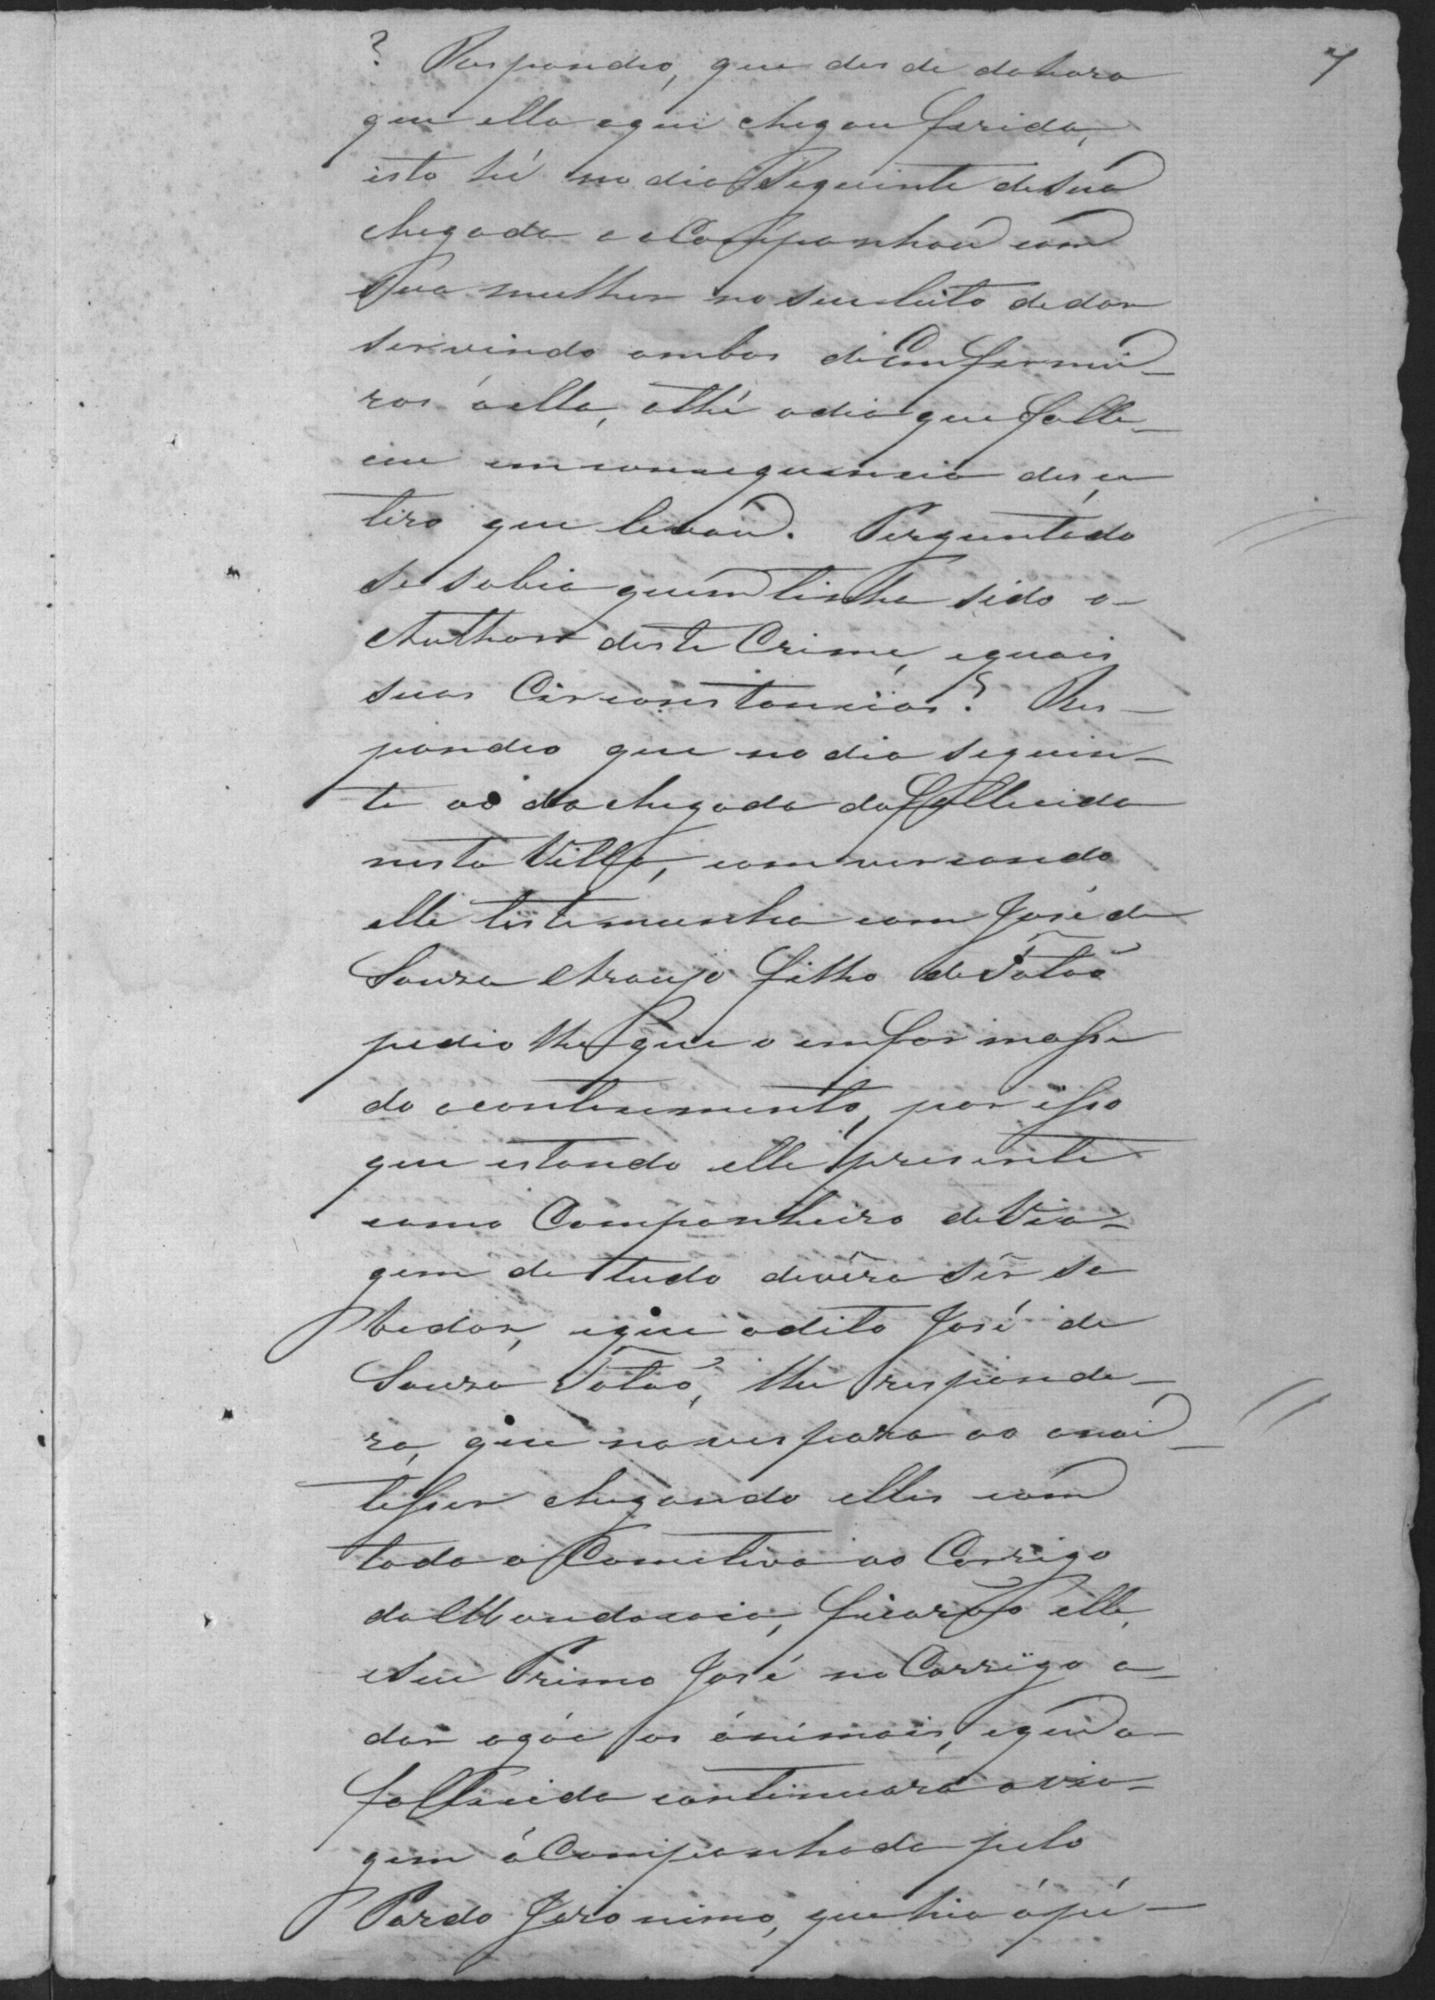 7
? Respondeo, que des de da hora
que ella aqui chegou ferida,
isto hé no dia Seguinte de sua
chegada a aCompanhou com
Sua mulher no seu leito de dor
servindo ambos de Emfermei-
ros á ella, athé o dia que falle-
ceu em consequencia des,e
tiro que levou. Perguntado
se sabia quem tinha sido o
Author deste Crime, e quais
suas Circonstancias? Res-
pondeo que no dia seguin-
te ao da chegada da fallecida
nesta Villa, comversando
elle testemunha com José de
Souza Araujo filho de Totaõ
pedio lhe que o emformasse
do acontesimento, por isso
que estando elle presente
como Companheiro de Via-
gem de tudo devêra sêr sa
bedor, e que o dito José de
Souza Totaõ, lhe responde-
ra, que na vespara ao anoi-
tesser chegando elles com
toda a Cometiva ao Corrigo
da Mandasaia, ficaraõ elle,
e Seu Primo José no Corrigo a
dar agôa os ánimais, e que a
fallecida continuara a via-
gem áCompanhada pelo
Pardo Jeronimo, que hia ápé-